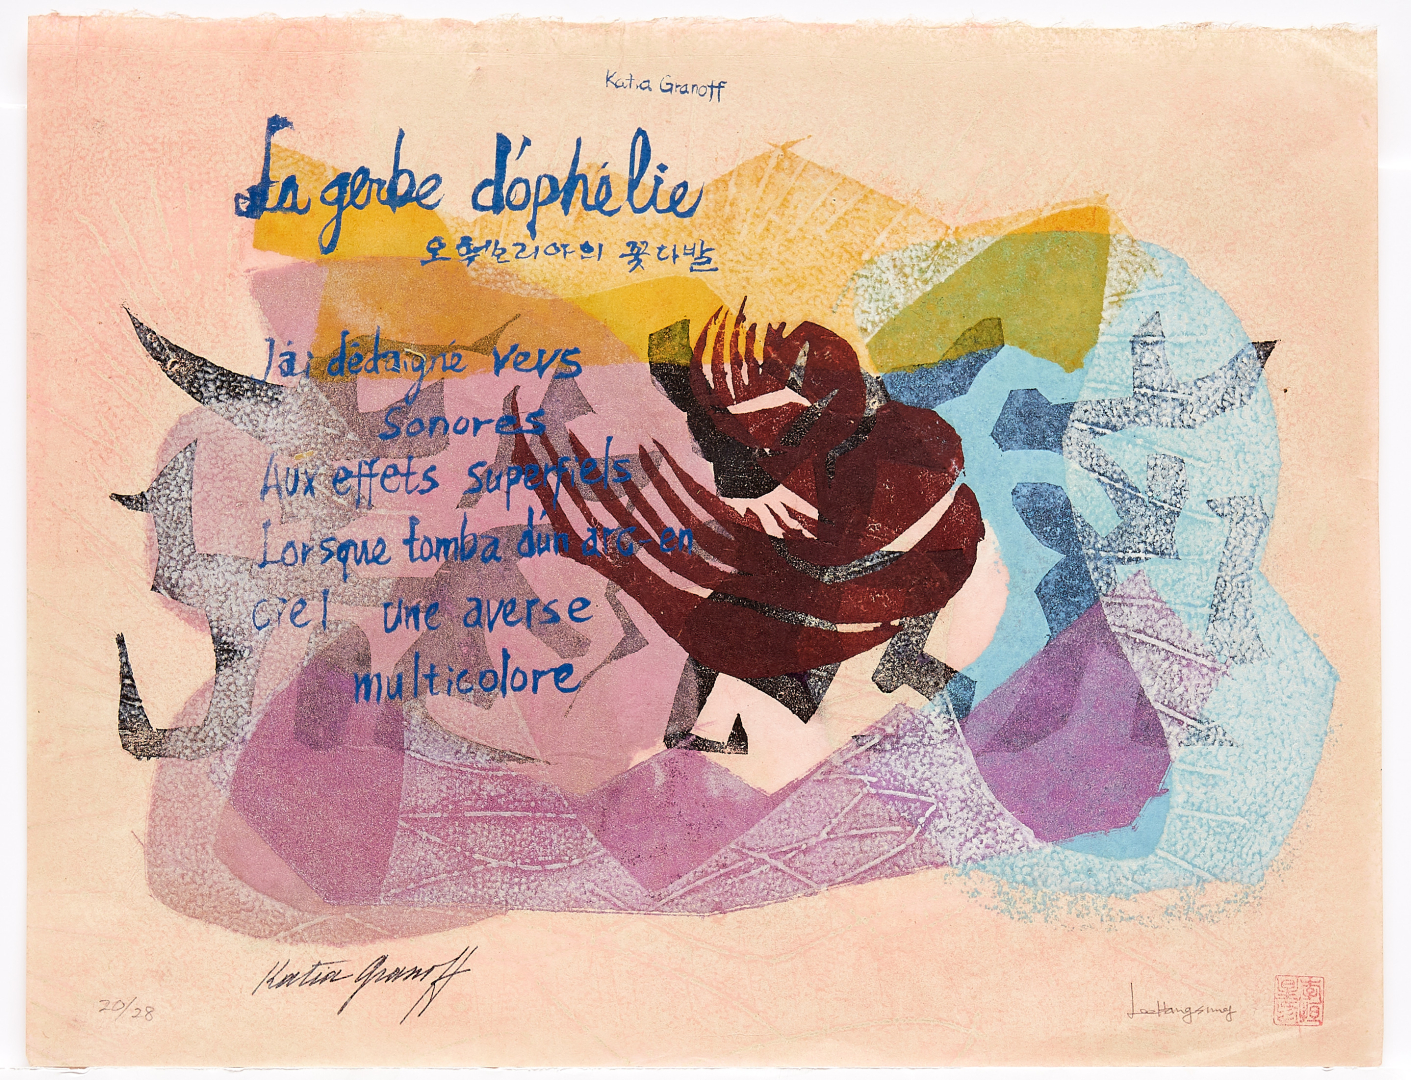 Katia Granoff
La gerbe d'ophélie
오휄리아의 꽃다발
J'ai dédaigné vers
Sonores
Aux effets superfiels
Lorsque tomba d'un arc-en
ciel une averse
multicolore
Katia Granoff
20/28
LeeHangsung